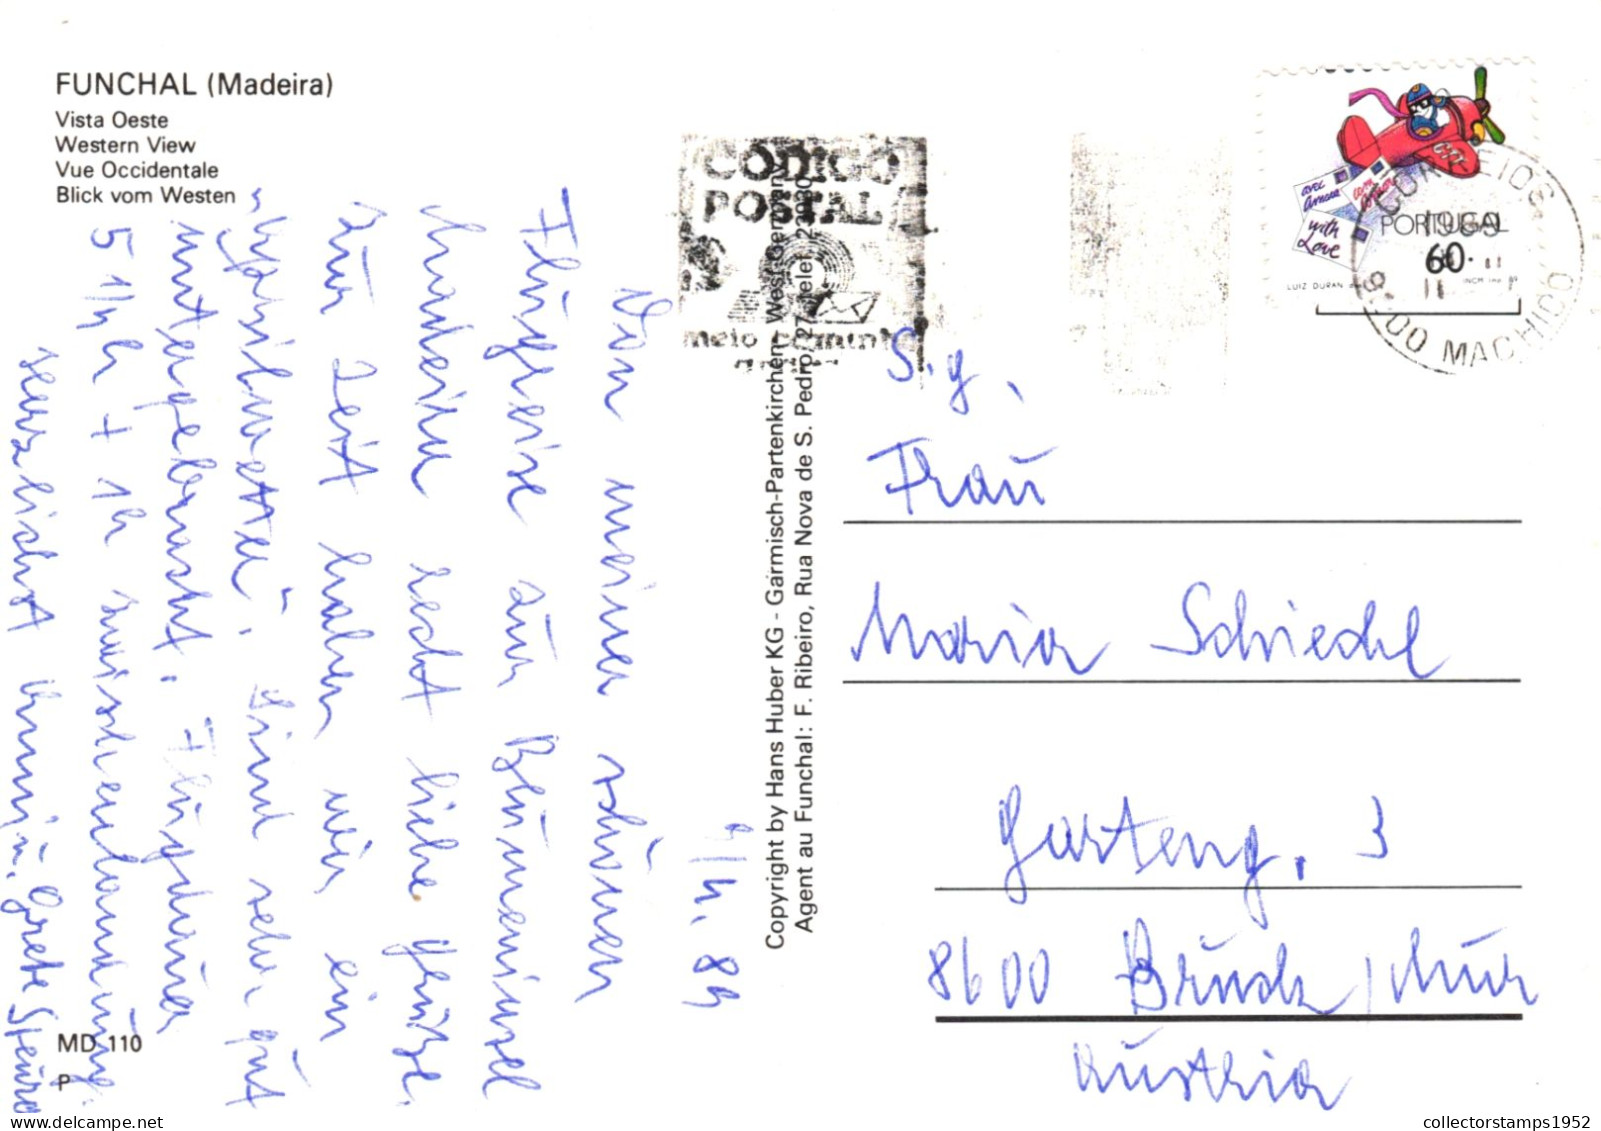 FUNCHAL (Madeira)
Vista Oeste
Western View
Vue Occidentale
Blick vom Westen
CÓDIGO
POSTAL
meio caminho
andado
avec
amour
com
amor
with
Love
CTT
PORTUGAL
60.
LUIZ DURAN
INCM
CORREIOS
1989
9200 MACHICO
9/4. 89
Von meiner schönen
Flugreise zur Blumeninsel
Madeira recht liebe Grüße.
Zur Zeit haben wir ein
„Aprilwetter". Sind sehr gut
untergebracht. Flugdauer
5 1/2 h + 1h Zwischenlandung.
Herzlichst Ihre Grete
Copyright by Hans Huber KG - Garmisch-Partenkirchen - West Germany
Agent au Funchal: F. Ribeiro, Rua Nova de S. Pedro, 27
S.g.
Frau
Maria Schiedhl
Garteng. 3
8600 Bruck/Mur
Austria
MD 110
P
collectorstamps1952